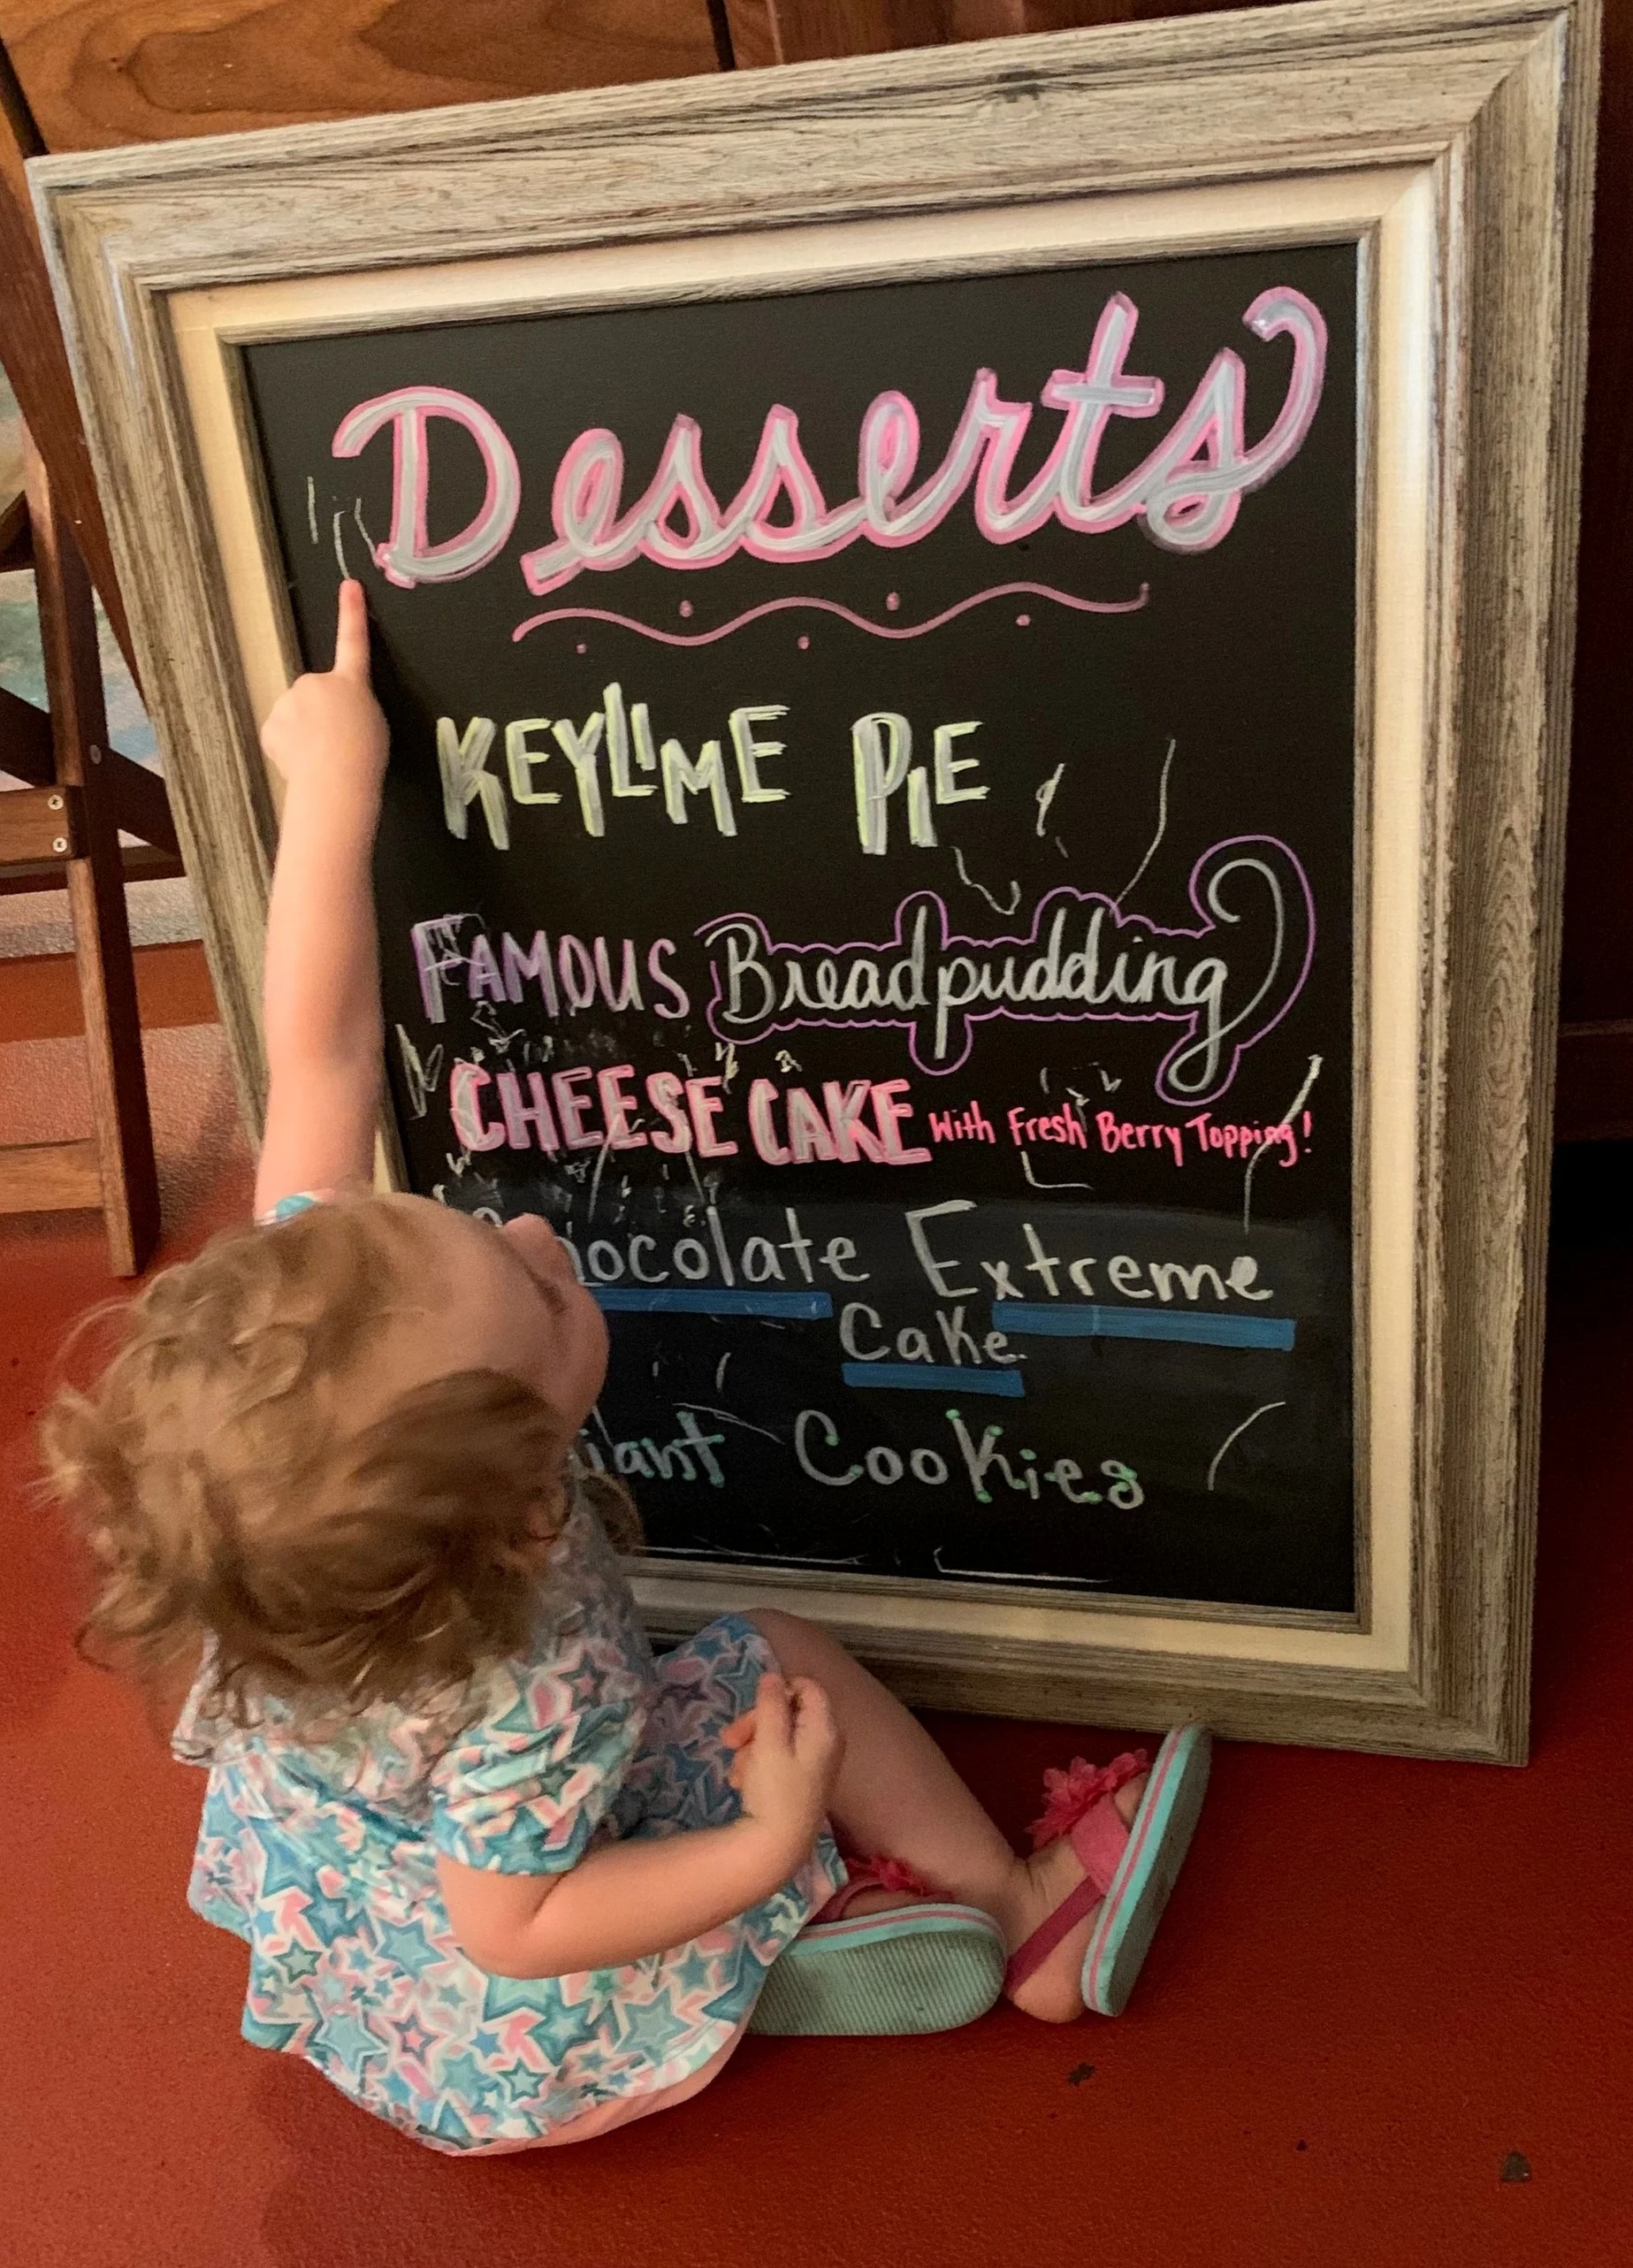 Desserts
KEYLIME PIE
FAMOUS Breadpudding
CHEESE CAKE With Fresh Berry Topping!
Chocolate Extreme
Cake
Giant Cookies